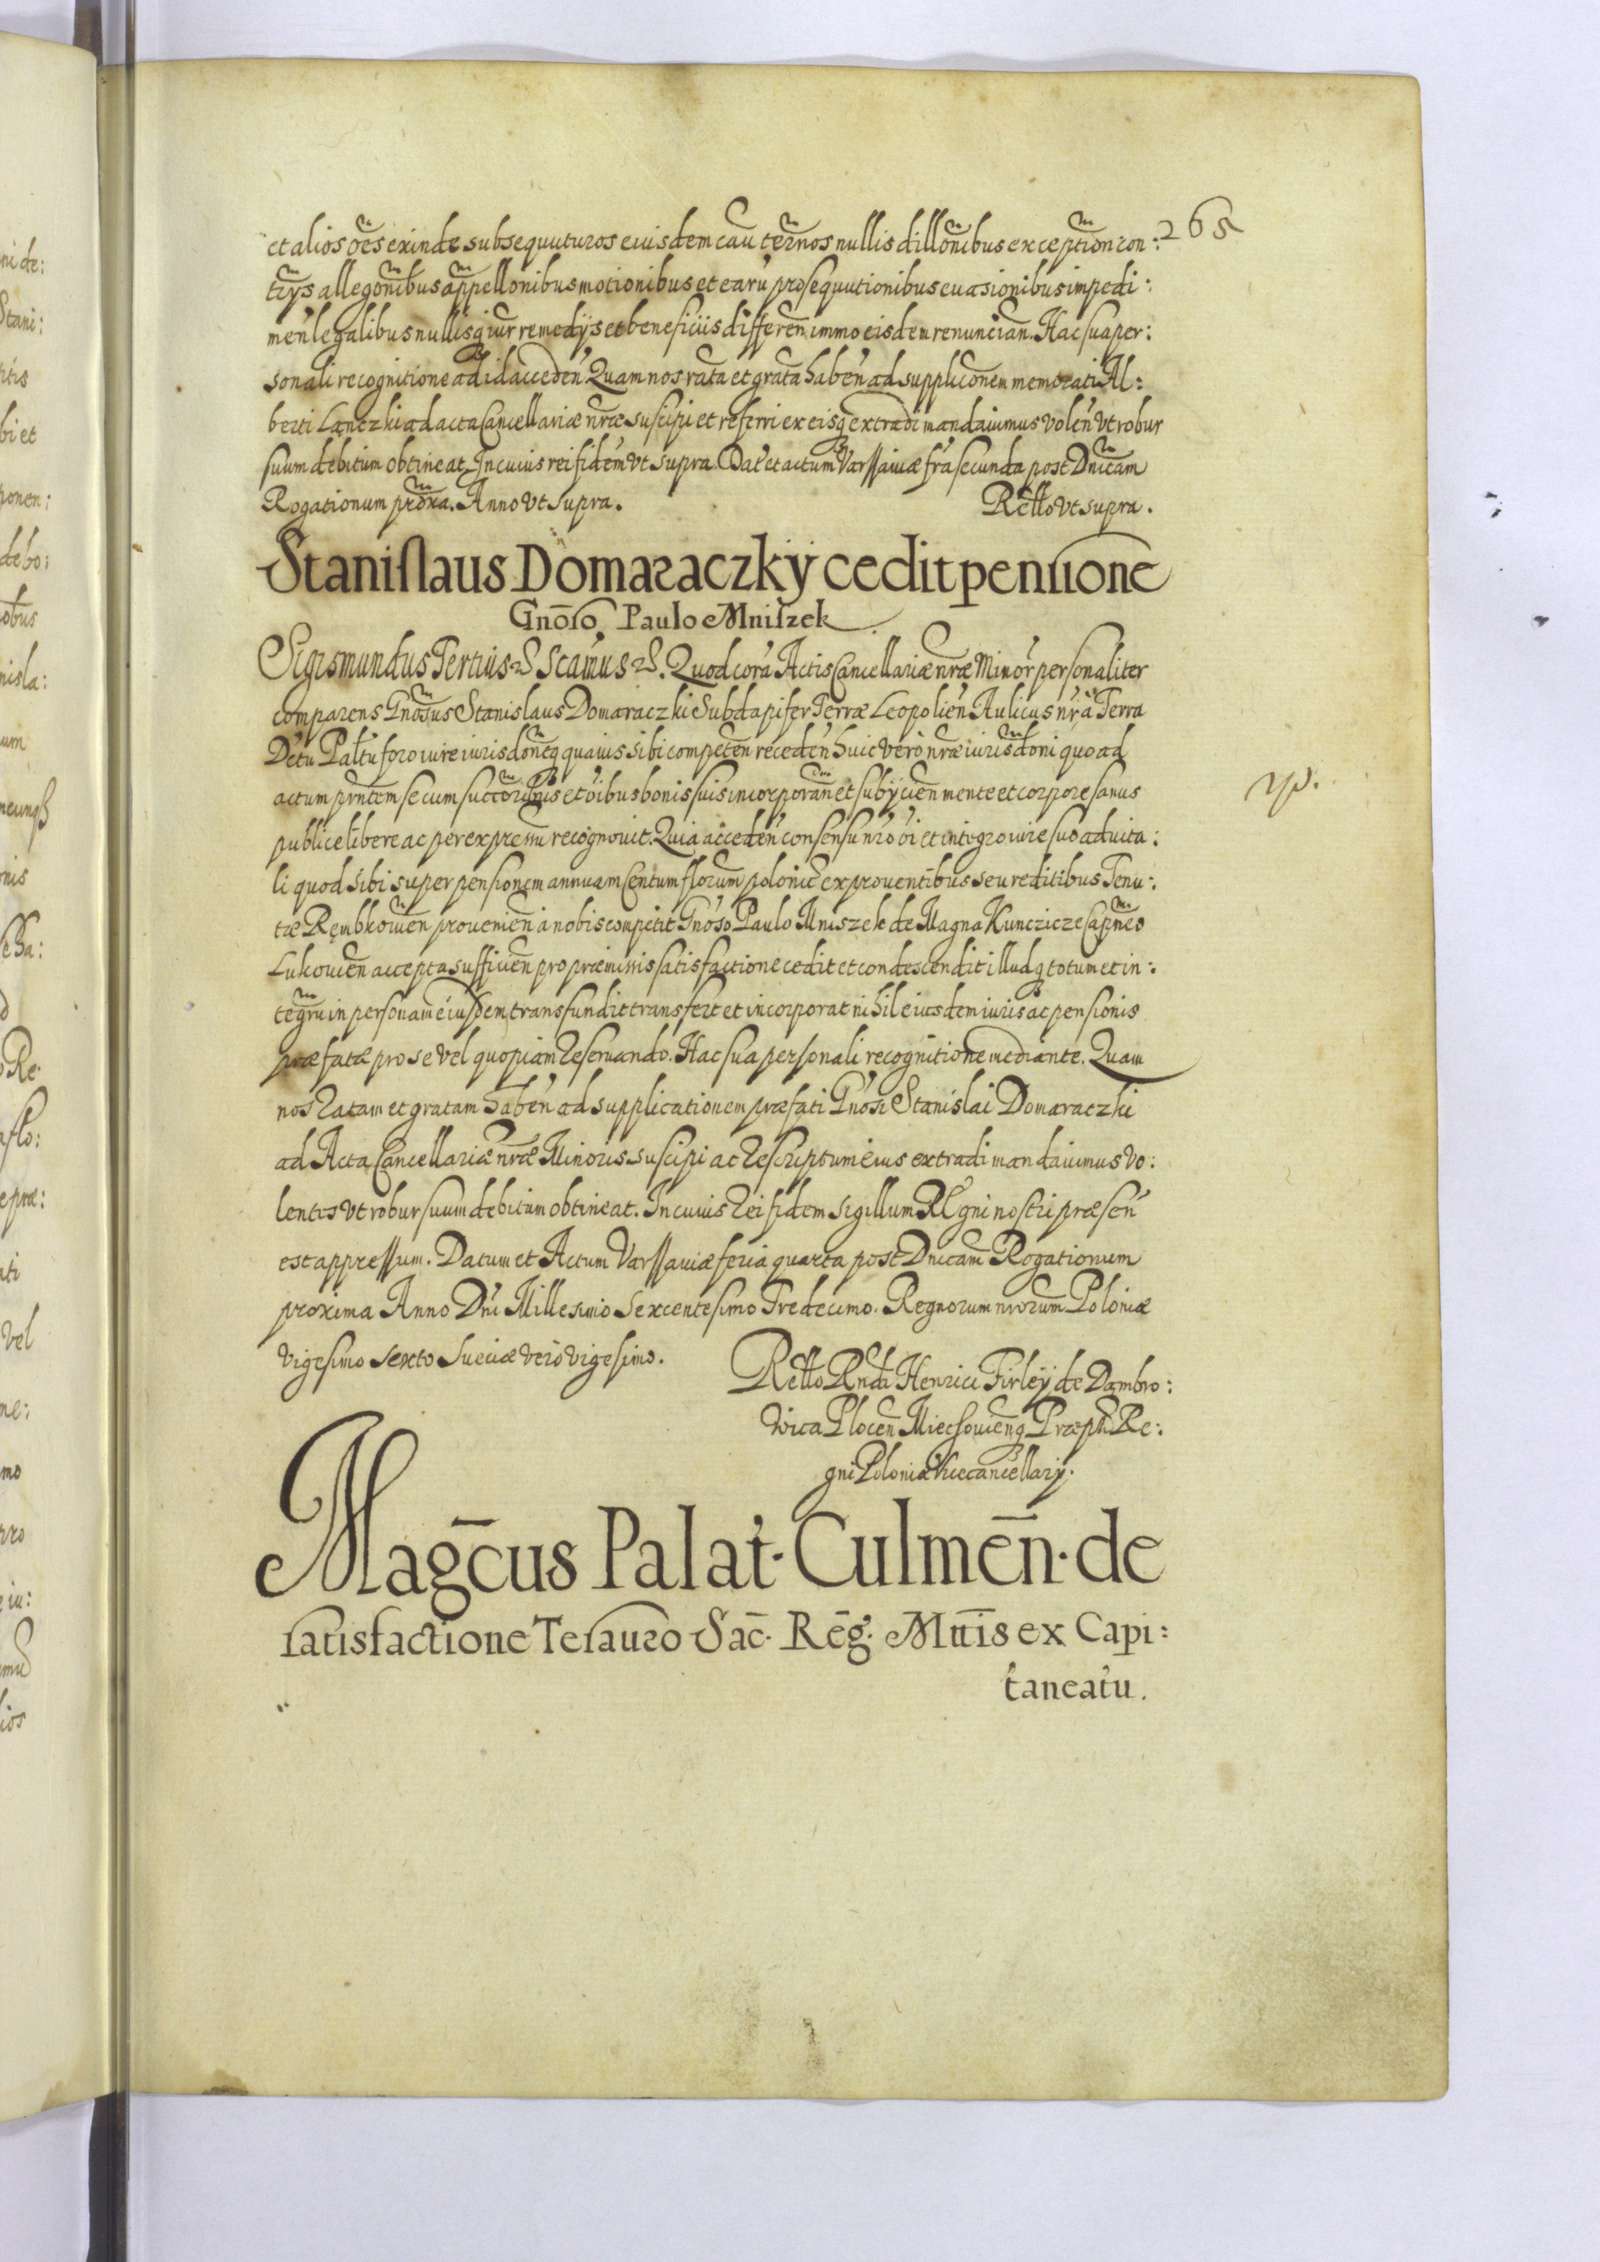 265
et alios oēs exinde subsequuturos eiusdem cau termnos nullis dillōnibus exceptiōn con:
trÿs allegōnibus appellonibus motionibus et earū prosequutionibus euasionibus impedi:
men̄ legalibus nullisq̧ iur remedÿs et beneficiis differen̄ immo eisdem renuncian̄. Hac sua per:
sonali recognitione ad id acceden̄ Quam nos rata et grata haben̄ ad supplicōnem memorati Al:
berti Lanczki ad acta Cancellariæ nr̄æ suscipi et referri ex eisq̧ extradi mandauimus volen̄ vt robur
suum debitum obtineat. In cuius rei fidem vt supra. Dat' et actum Varssauiæ fr̄a secunda post Dnicam
Rogationum prōxa. Anno vt supra.
Rello vt supra.
Stanislaus Domaraczkÿ cedit pensione
Gnōso Paulo Mniszek
Sigismundus Tertius Scāmus. Quod corā Actis Cancellariæ nr̄æ Minor̄ personaliter
comparens Gnōsus Stanislaus Domaraczki Subdapifer Terræ Leopolien̄ Aulicus nr̄ a Terra
Dctu Paltu foro iure iurisdōneq̧ quauis sibi competen̄ receden̄ huic verò nr̄æ iurisdōni quo ad
actum pr̄ntem se cum succōribus et oībus bonis suis incorporan̄ et subÿcien̄ mente et corpore sanus
publice libere ac per expressū recognouit. Quia acceden̄ consensu nr̄o oī et integro iure suo aduita:
li quod sibi super pensionem annuam Centum florum̄ polonic̄ ex prouentibus seu reditibus Tenu:
tæ Rembkowien̄ prouenien̄ à nobis competit Gnōso Paulo Mniszek de Magna Kunczicze Capneo
Lukouien̄ accepta sufficien̄ pro præmissis satisfactione cedit et condescendit illudq̧ totum et in:
tegrū in personam eiusdem transfundit transfert et incorporat nihil eiusdem iuris ac pensionis
præfatæ pro se vel quopiam reseruando. Hac sua personali recognitione mediante. Quam
nos ratam et gratam haben̄ ad supplicationem præfati Gnōsi Stanislai Domaraczki
ad Acta Cancellariæ nr̄æ Minoris suscipi ac rescriptum eius extradi mandauimus vo:
lentes vt robur suum debitum obtineat. In cuius rei fidem sigillum REgni nostri præsen̄
est appressum. Datum et Actum Varssauiæ feria quarta post Dnicam Rogationum
proxima Anno Dn̄i Millesimo Sexcentesimo Tredecimo. Regnorum nr̄orum Poloniæ
vigesimo sexto Sueciæ verò vigesimo.
Rello Rndi Henrici Firleÿ de Dambro:
wica Plocen̄ Miechouien̄q̧ Præpti Re:
gni Poloniæ Vicecancellarÿ.
Magc̄us Palat. Culmēn. de
satisfactione Tesauro Sac̄. Rēg. Mttis ex Capi:
taneatu.